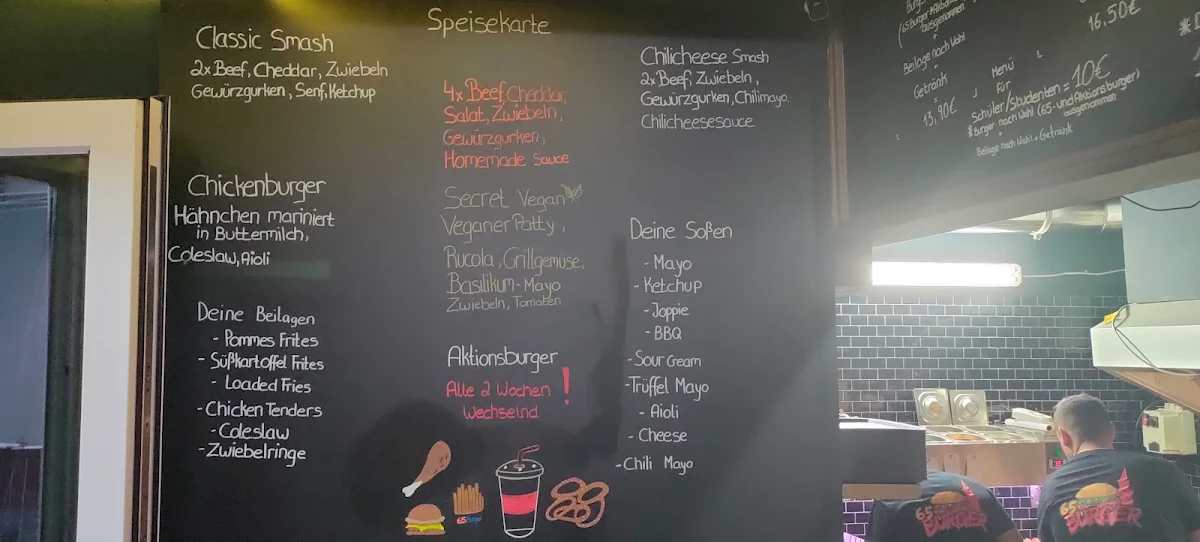 Speisekarte
Classic Smash
2x Beef, Cheddar, Zwiebeln
Gewürzgurken, Senf, Ketchup
Chickenburger
Hähnchen mariniert
in Buttermilch,
Coleslaw, Aioli
Deine Beilagen
- Pommes Frites
- Süßkartoffel Frites
- Loaded Fries
- Chicken Tenders
- Coleslaw
- Zwiebelringe
4x Beef, Cheddar,
Salat, Zwiebeln,
Gewürzgurken,
Homemade Sauce
Secret Vegan
Veganer Patty,
Rucola, Grillgemüse,
Basilikum-Mayo
Zwiebeln, Tomaten
Aktionsburger
Alle 2 Wochen
Wechselnd !
65 Burger
Chilicheese Smash
2x Beef, Zwiebeln,
Gewürzgurken, Chilimayo,
Chilicheesesauce
Deine Soßen
- Mayo
- Ketchup
- Joppie
- BBQ
- Sour Cream
- Trüffel Mayo
- Aioli
- Cheese
- Chili Mayo
ausgenommen
Beilage nach Wahl
+
Getränk
=
13,90€
16,50€
Menü
für
Schüler/Studenten = 10€
*Burger nach Wahl (65- und Aktionsburger)
ausgenommen
Beilage nach Wahl + Getränk
65
BURGER
65
BURGER